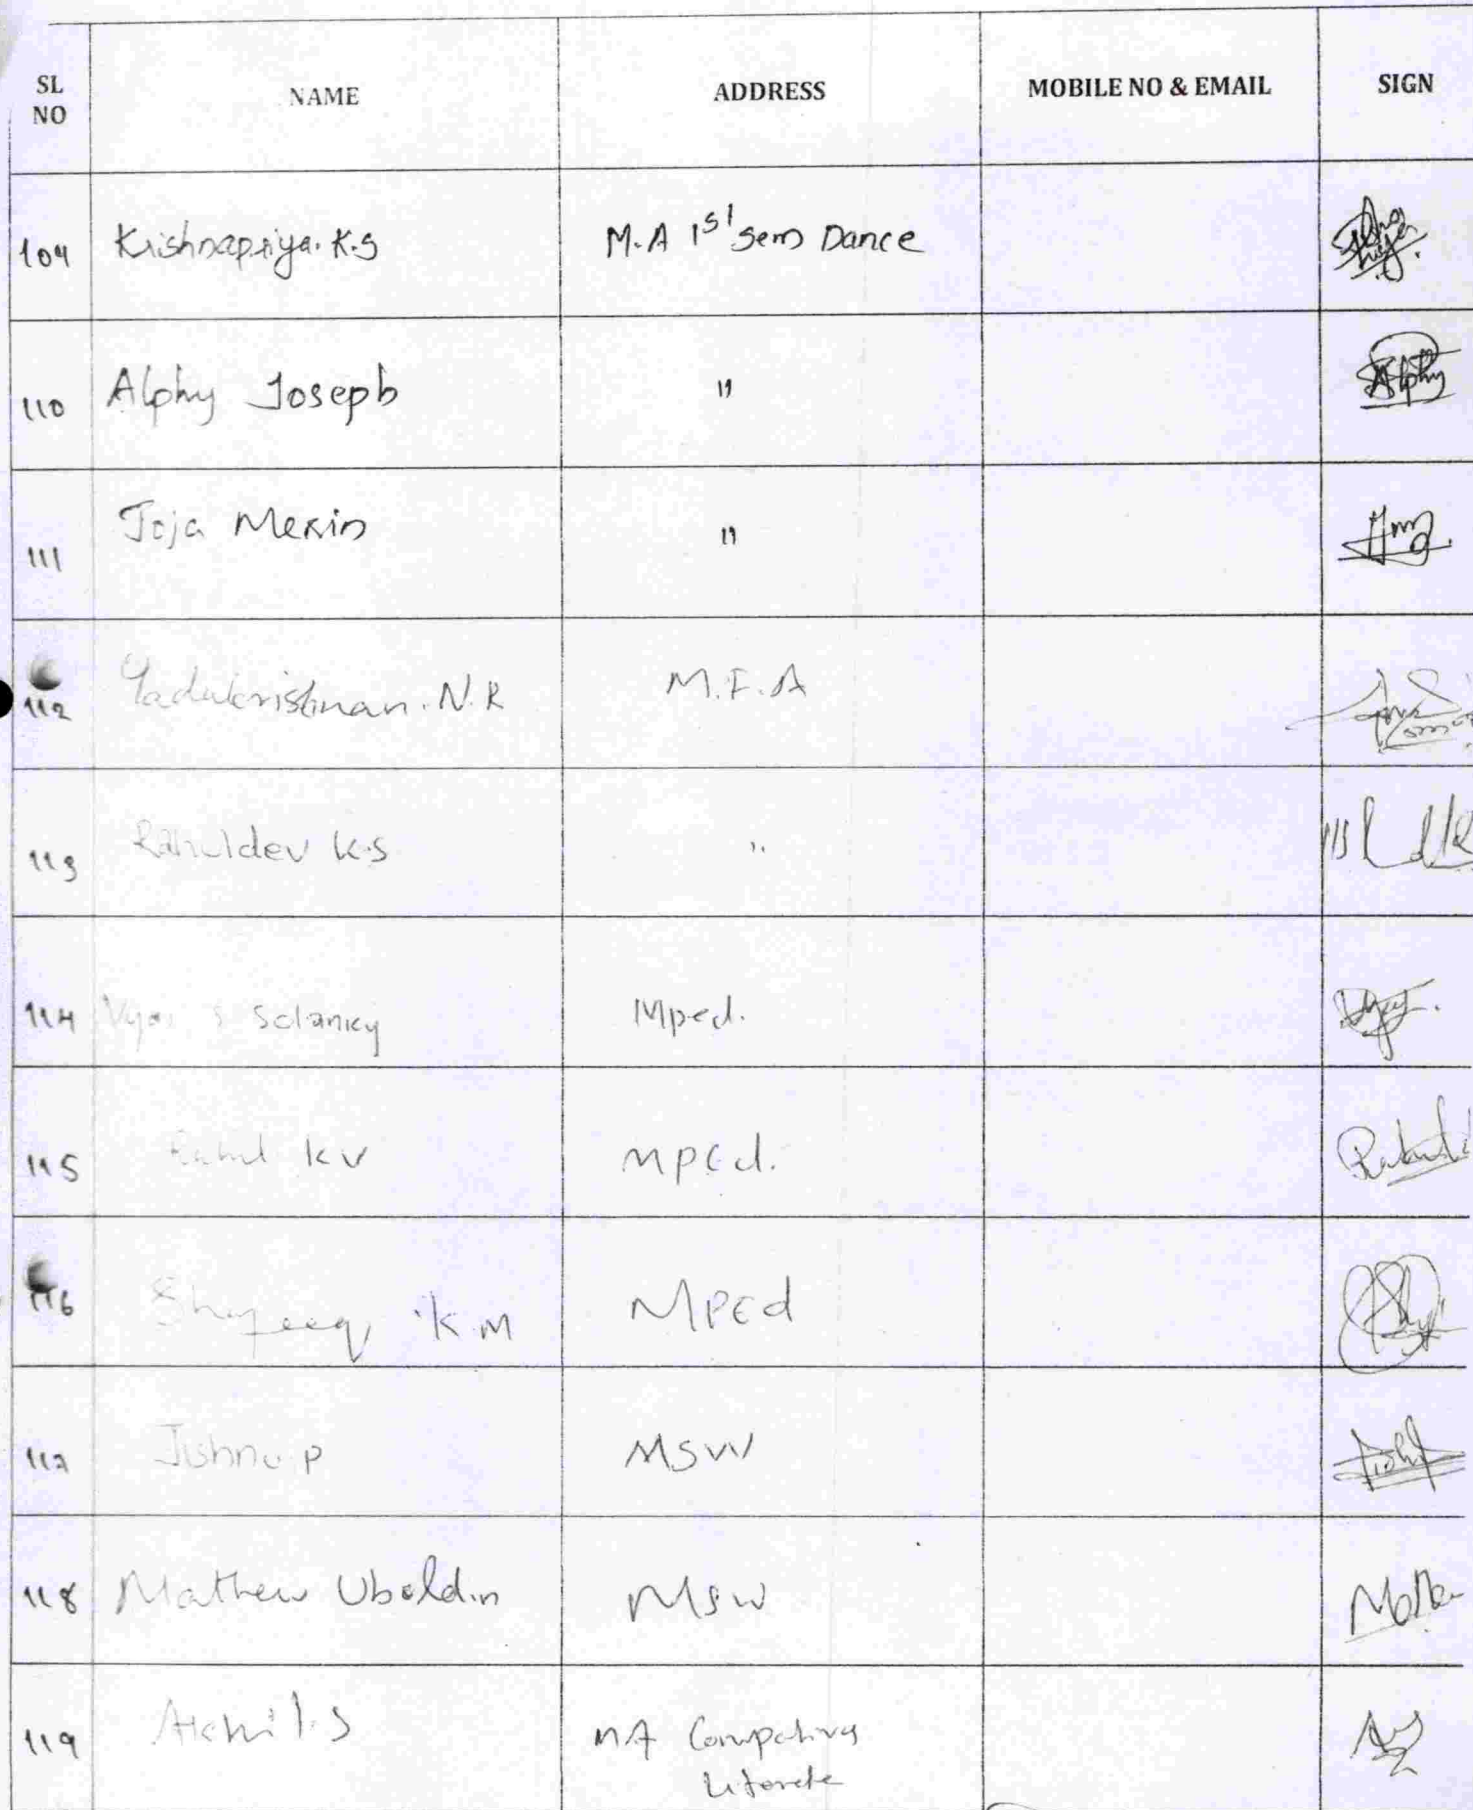 SL NO NAME ADDRESS MOBILE NO & EMAIL SIGN
109 Krishnapriya. K.S M.A 1st sem Dance
110 Alphy Joseph " Alphy
111 Joja Merin "
112 Yadukrishnan. N.R M.F.A
113 Rahuldev K.S "
114 Solanky Mped.
115 Rahul K V MPEd.
116 Shafeeq K.M MPEd
117 Jishnu P MSW
118 Mathew Uboldin MSW
119 Akhil.S MA Comparative
Literate